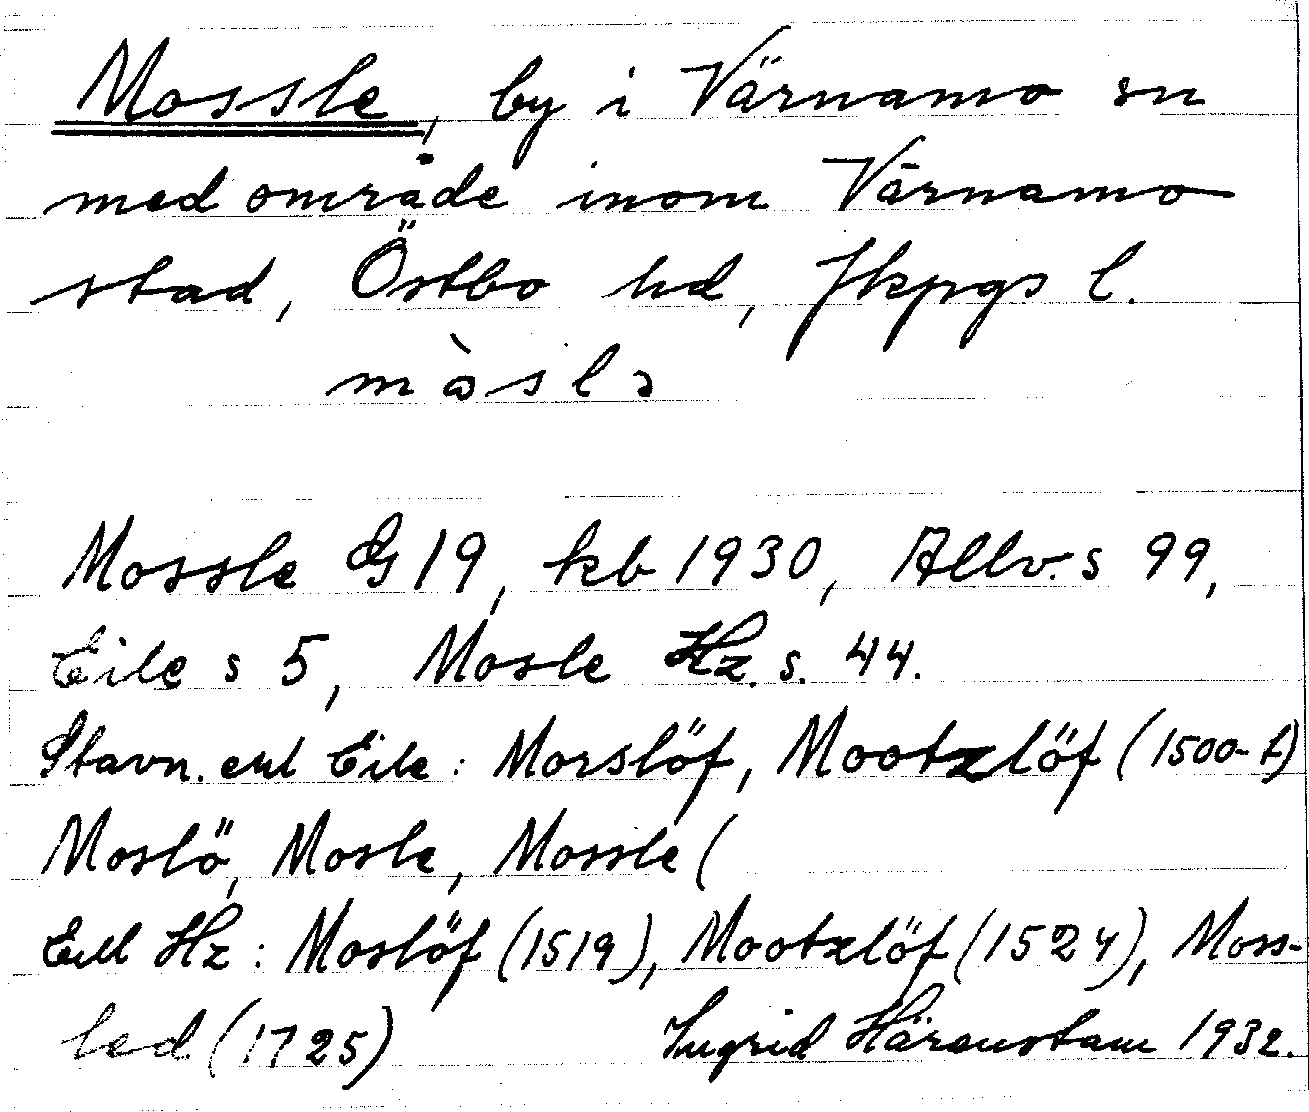 Mossle, by i Värnamo sn
med område inom Värnamo
stad, Östbo hd, Jkpgs l.
m̀ɑ̀slə
Mossle G 19, kb 1930, Allv. s 99,
Eile s 5, Mosle Hz. s. 44.
Stavn. enl Eile: Morslöf, Mootzlöf (1500-t)
Moslö, Mosle, Mossle (
Enl Hz: Moslöf (1519), Mootzlöf (1524), Moss-
led (1725) Ingrid Härenstam 1932.